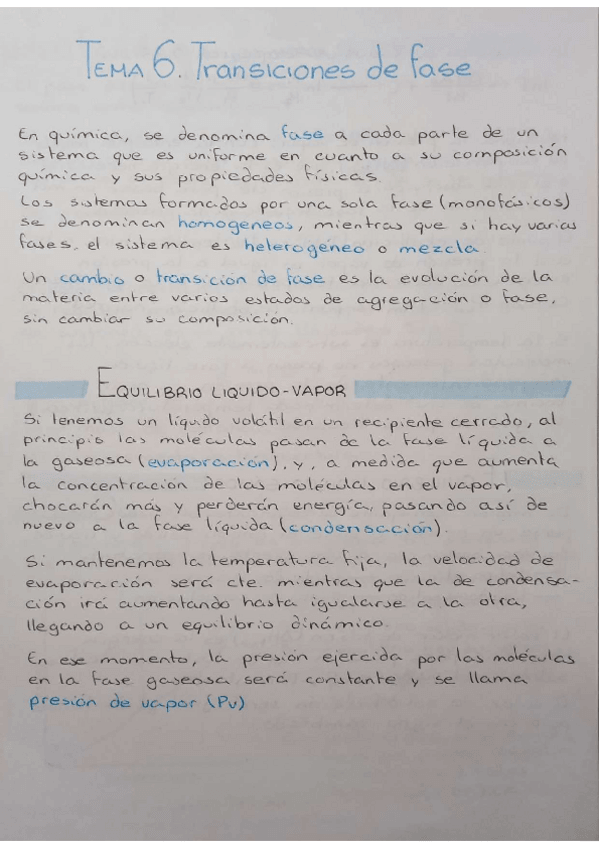 TEMA 6. Transiciones de fase
En química, se denomina fase a cada parte de un
sistema que es uniforme en cuanto a su composición
química y sus propiedades físicas.
Los sistemas formados por una sola fase (monofásicos)
se denominan homogéneos, mientras que si hay varias
fases, el sistema es heterogéneo o mezcla.
Un cambio o transición de fase es la evolución de la
materia entre varios estados de agregación o fase,
sin cambiar su composición.
EQUILIBRIO LIQUIDO-VAPOR
Si tenemos un líquido volátil en un recipiente cerrado, al
principio las moléculas pasan de la fase líquida a
la gaseosa (evaporación), y, a medida que aumenta
la concentración de las moléculas en el vapor,
chocarán más y perderán energía, pasando así de
nuevo a la fase líquida (condensación).
Si mantenemos la temperatura fija, la velocidad de
evaporación será cte. mientras que la de condensa-
ción irá aumentando hasta igualarse a la otra,
llegando a un equilibrio dinámico.
En ese momento, la presión ejercida por las moléculas
en la fase gaseosa será constante y se llama
presión de vapor (Pv)